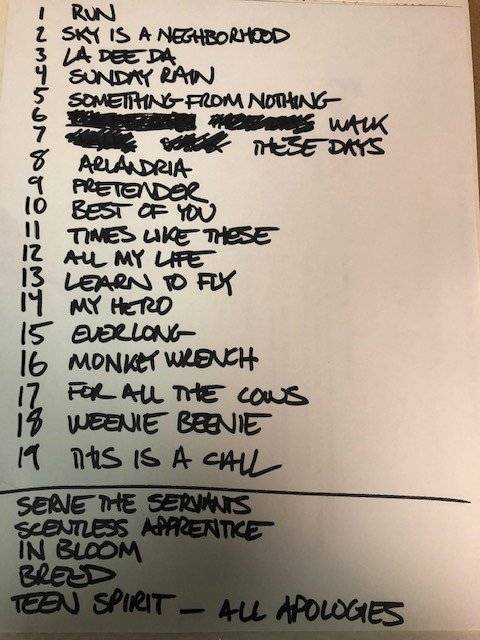 1 RUN
2 SKY IS A NEGHBORHOOD
3 LA DEE DA
4 SUNDAY RAIN
5 SOMETHING FROM NOTHING
6 WALK
7 THESE DAYS
8 ARLANDRIA
9 PRETENDER
10 BEST OF YOU
11 TIMES LIKE THESE
12 ALL MY LIFE
13 LEARN TO FLY
14 MY HERO
15 EVERLONG
16 MONKEY WRENCH
17 FOR ALL THE COWS
18 WEENIE BEENIE
19 THIS IS A CALL
SERVE THE SERVANTS
SCENTLESS APPRENTICE
IN BLOOM
BREED
TEEN SPIRIT — ALL APOLOGIES